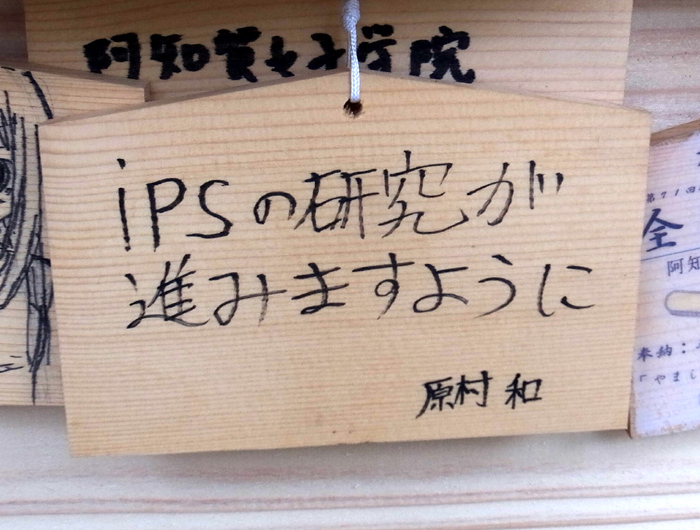 阿知賀女子学院
iPSの研究が
進みますように
原村 和
第71回
全
阿知
奉納:
「やまし